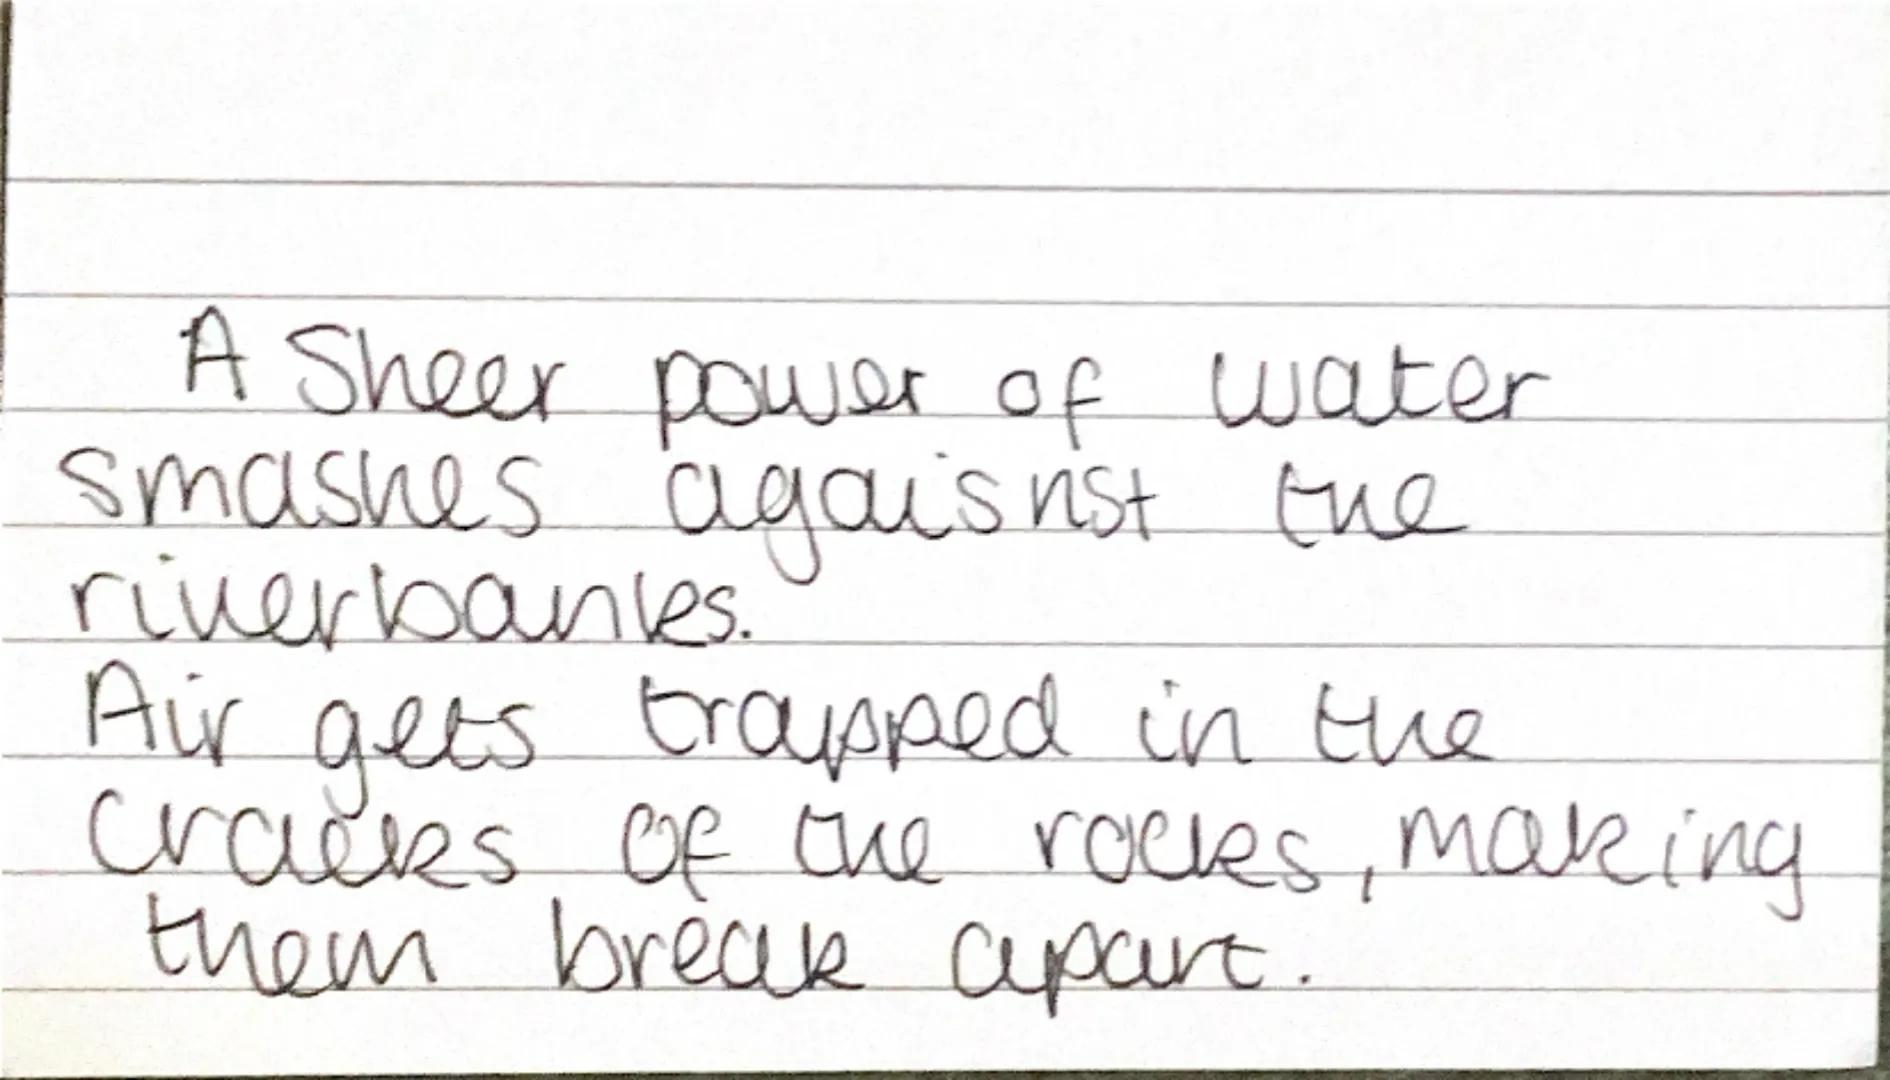 A Sheer power of water
smashes agaisnst the
riverbanks.
Air gets trapped in the
cracks of the rocks, making
them break apart.